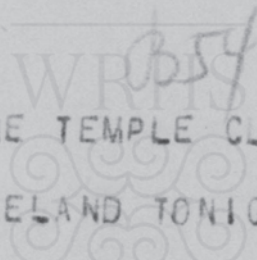 WRHS
B54
E TEMPLE CL
ELAND TONIC